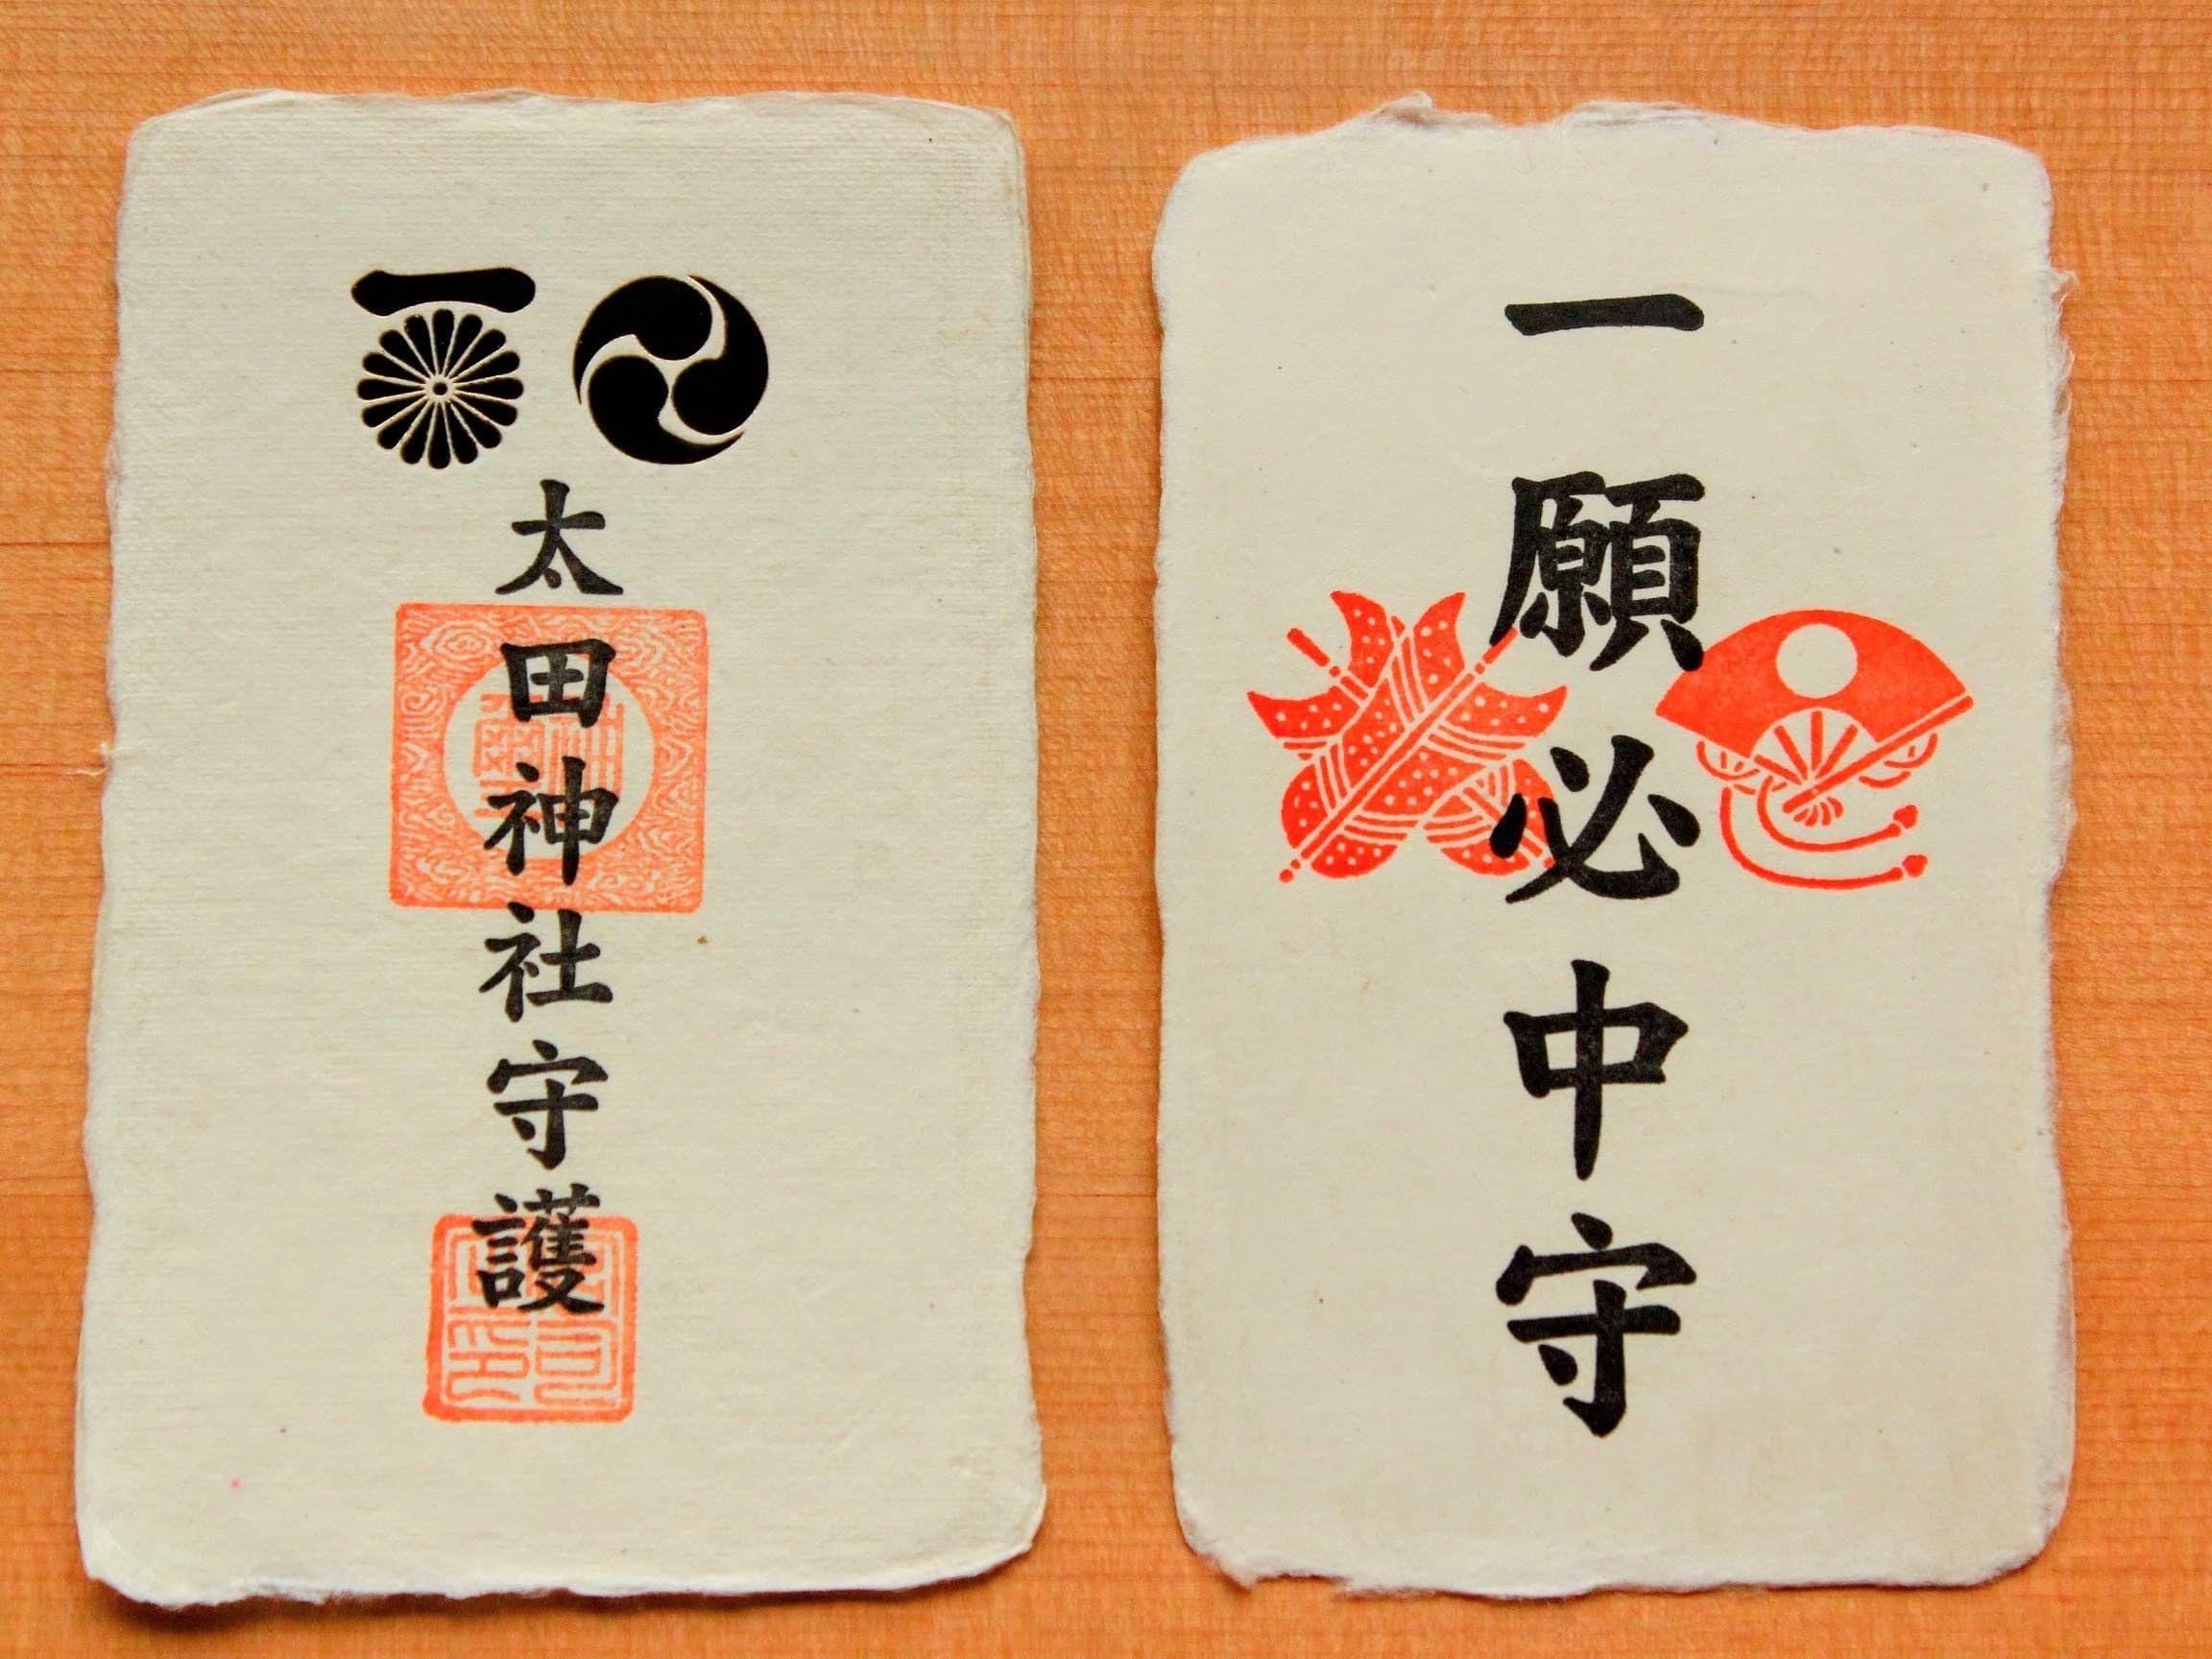 太田神社守護
一願必中守